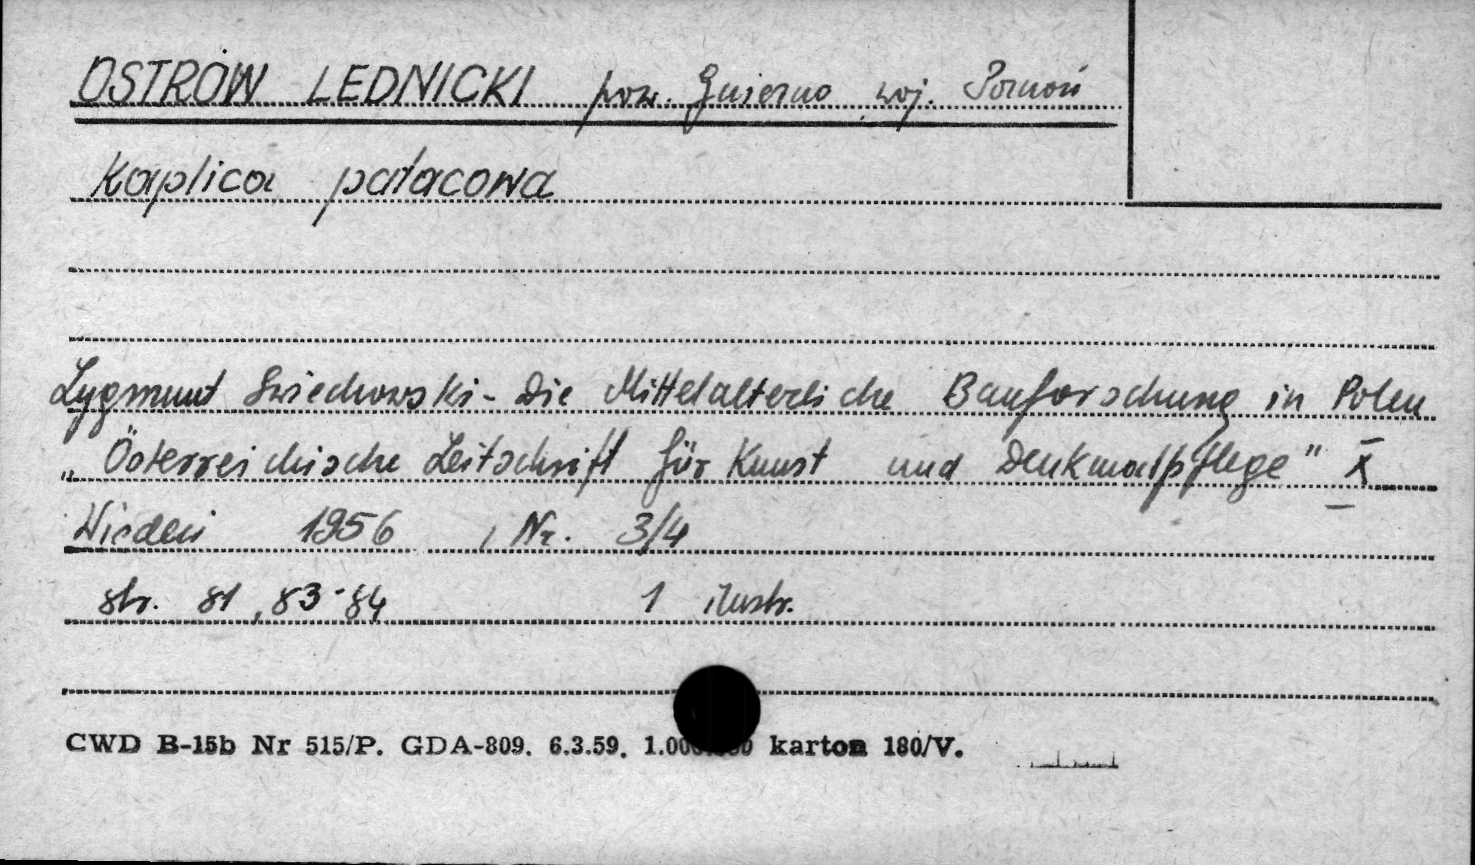 OSTRÓW LEDNICKI pow. Gniezno woj. Poznań
Kaplica pałacowa
Zygmunt Świechowski - Die Mittelalterliche Bauforschung in Polen
„Österreichische Zeitschrift für Kunst und Denkmalpflege" X
Wiedeń 1956, Nr. 3/4
str. 81, 83-84 1 ilustr.
CWD B-15b Nr 515/P. GDA-809. 6.3.59. karton 180/V.